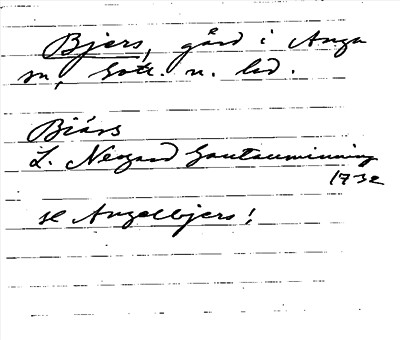 Bjers, gård i Anga
sn, Gotl. n. hd.
Biärs
L. Neogard Gautauminning
1732
se Angelbjers!